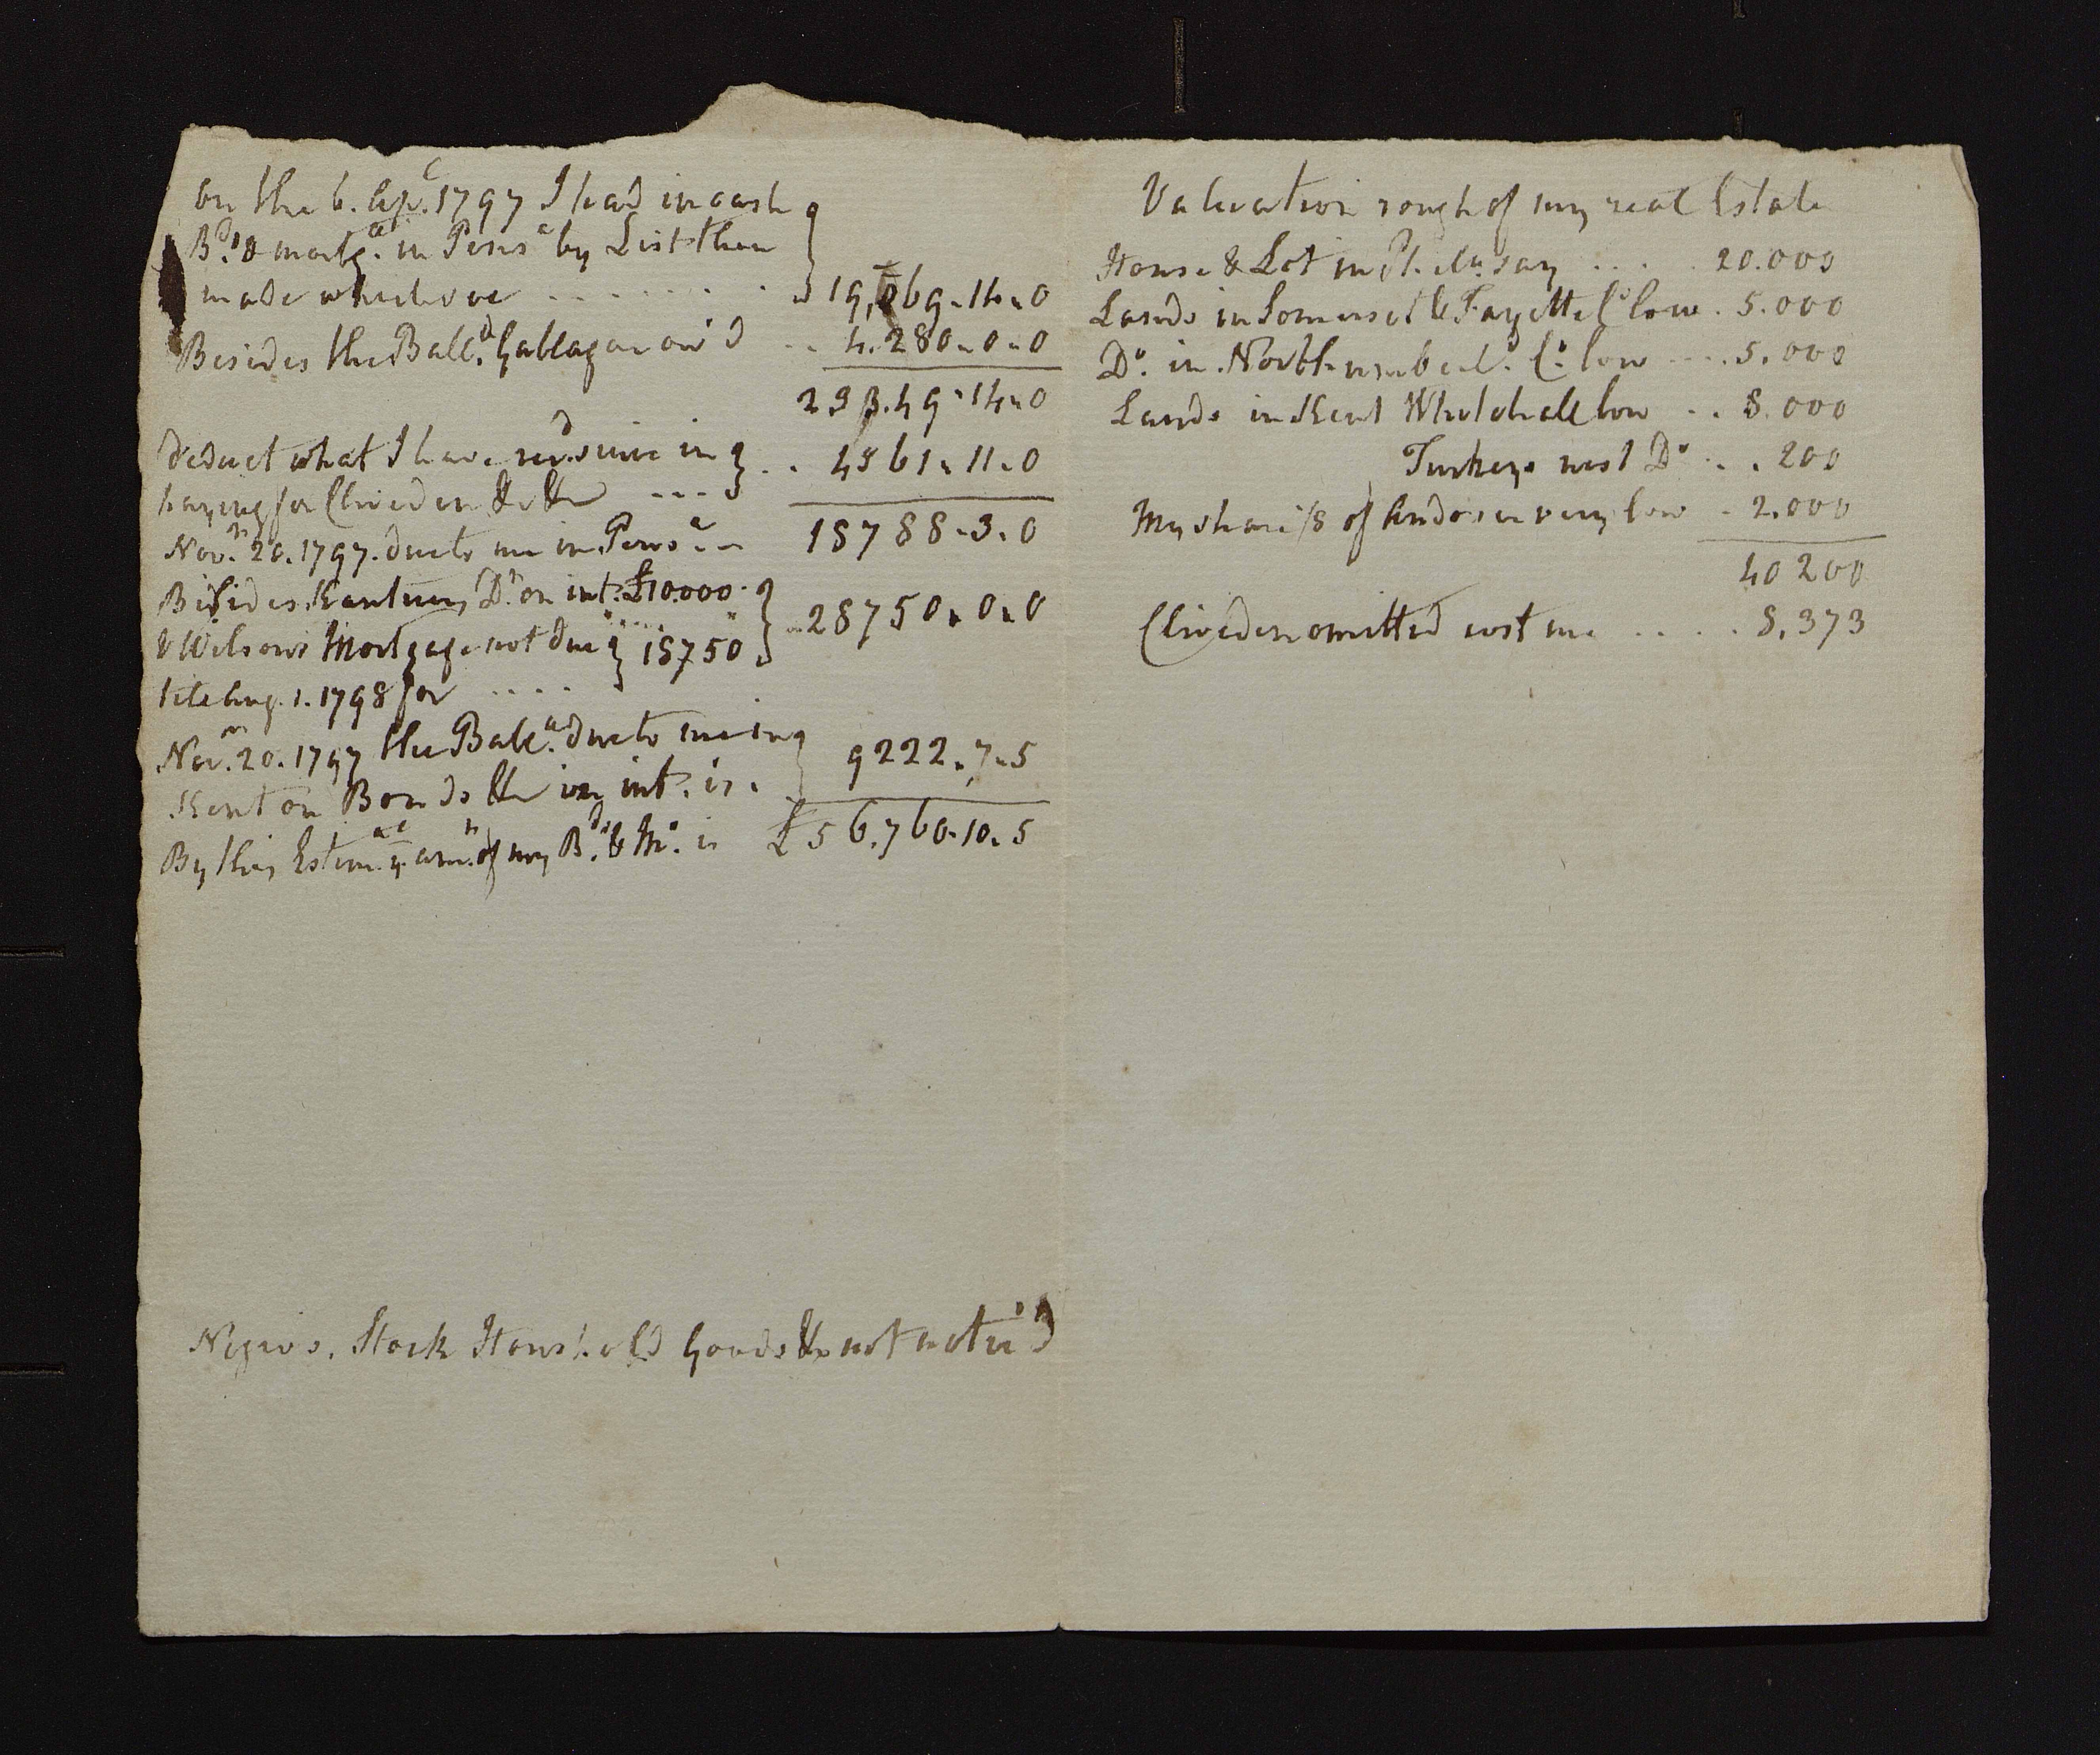 On the 6. Apl. 1797 I had in cash
Bds. & mortgs. in Pensa by List then
made which are . . . . . . . 19,069. 14. 0
Besides the Balle. Gallagar ow'd . . 4.280. 0. 0
233.49. 14. 0
Deduct what I have recd. since in . . 4561. 11. 0
paying for Cliveden &c &c - - -
Novr. 20. 1797. due to me in Pensa - - 18788. 3. 0
Besides Dr. on int. £10.000.
& Wilsons Mortgage not due 18750 . . 28750. 0. 0
till Aug. 1. 1798 for . . . .
Novr. 20. 1797 the Balle. due to me in
Kent on Bonds &c on int. is. 9222. 7. 5
By this Estimate ye amt. of my Bds. & Mo. is £56.760. 10. 5
Negros. Stock Houshold Goods &c not notic'd
Valuation rough of my real Estate
House & Lot in Philada. say . . . . 20.000
Lands in Somerset & Fayette Co. low . 5.000
Do. in Northumberld. Co. low . . . . 5.000
Lands in Kent Whitehall low . . 8.000
Turkeys nest Do . . . 200
My share /8 of Andover very low . 2.000
40200
Cliveden omitted cost me . . . . . 8,373